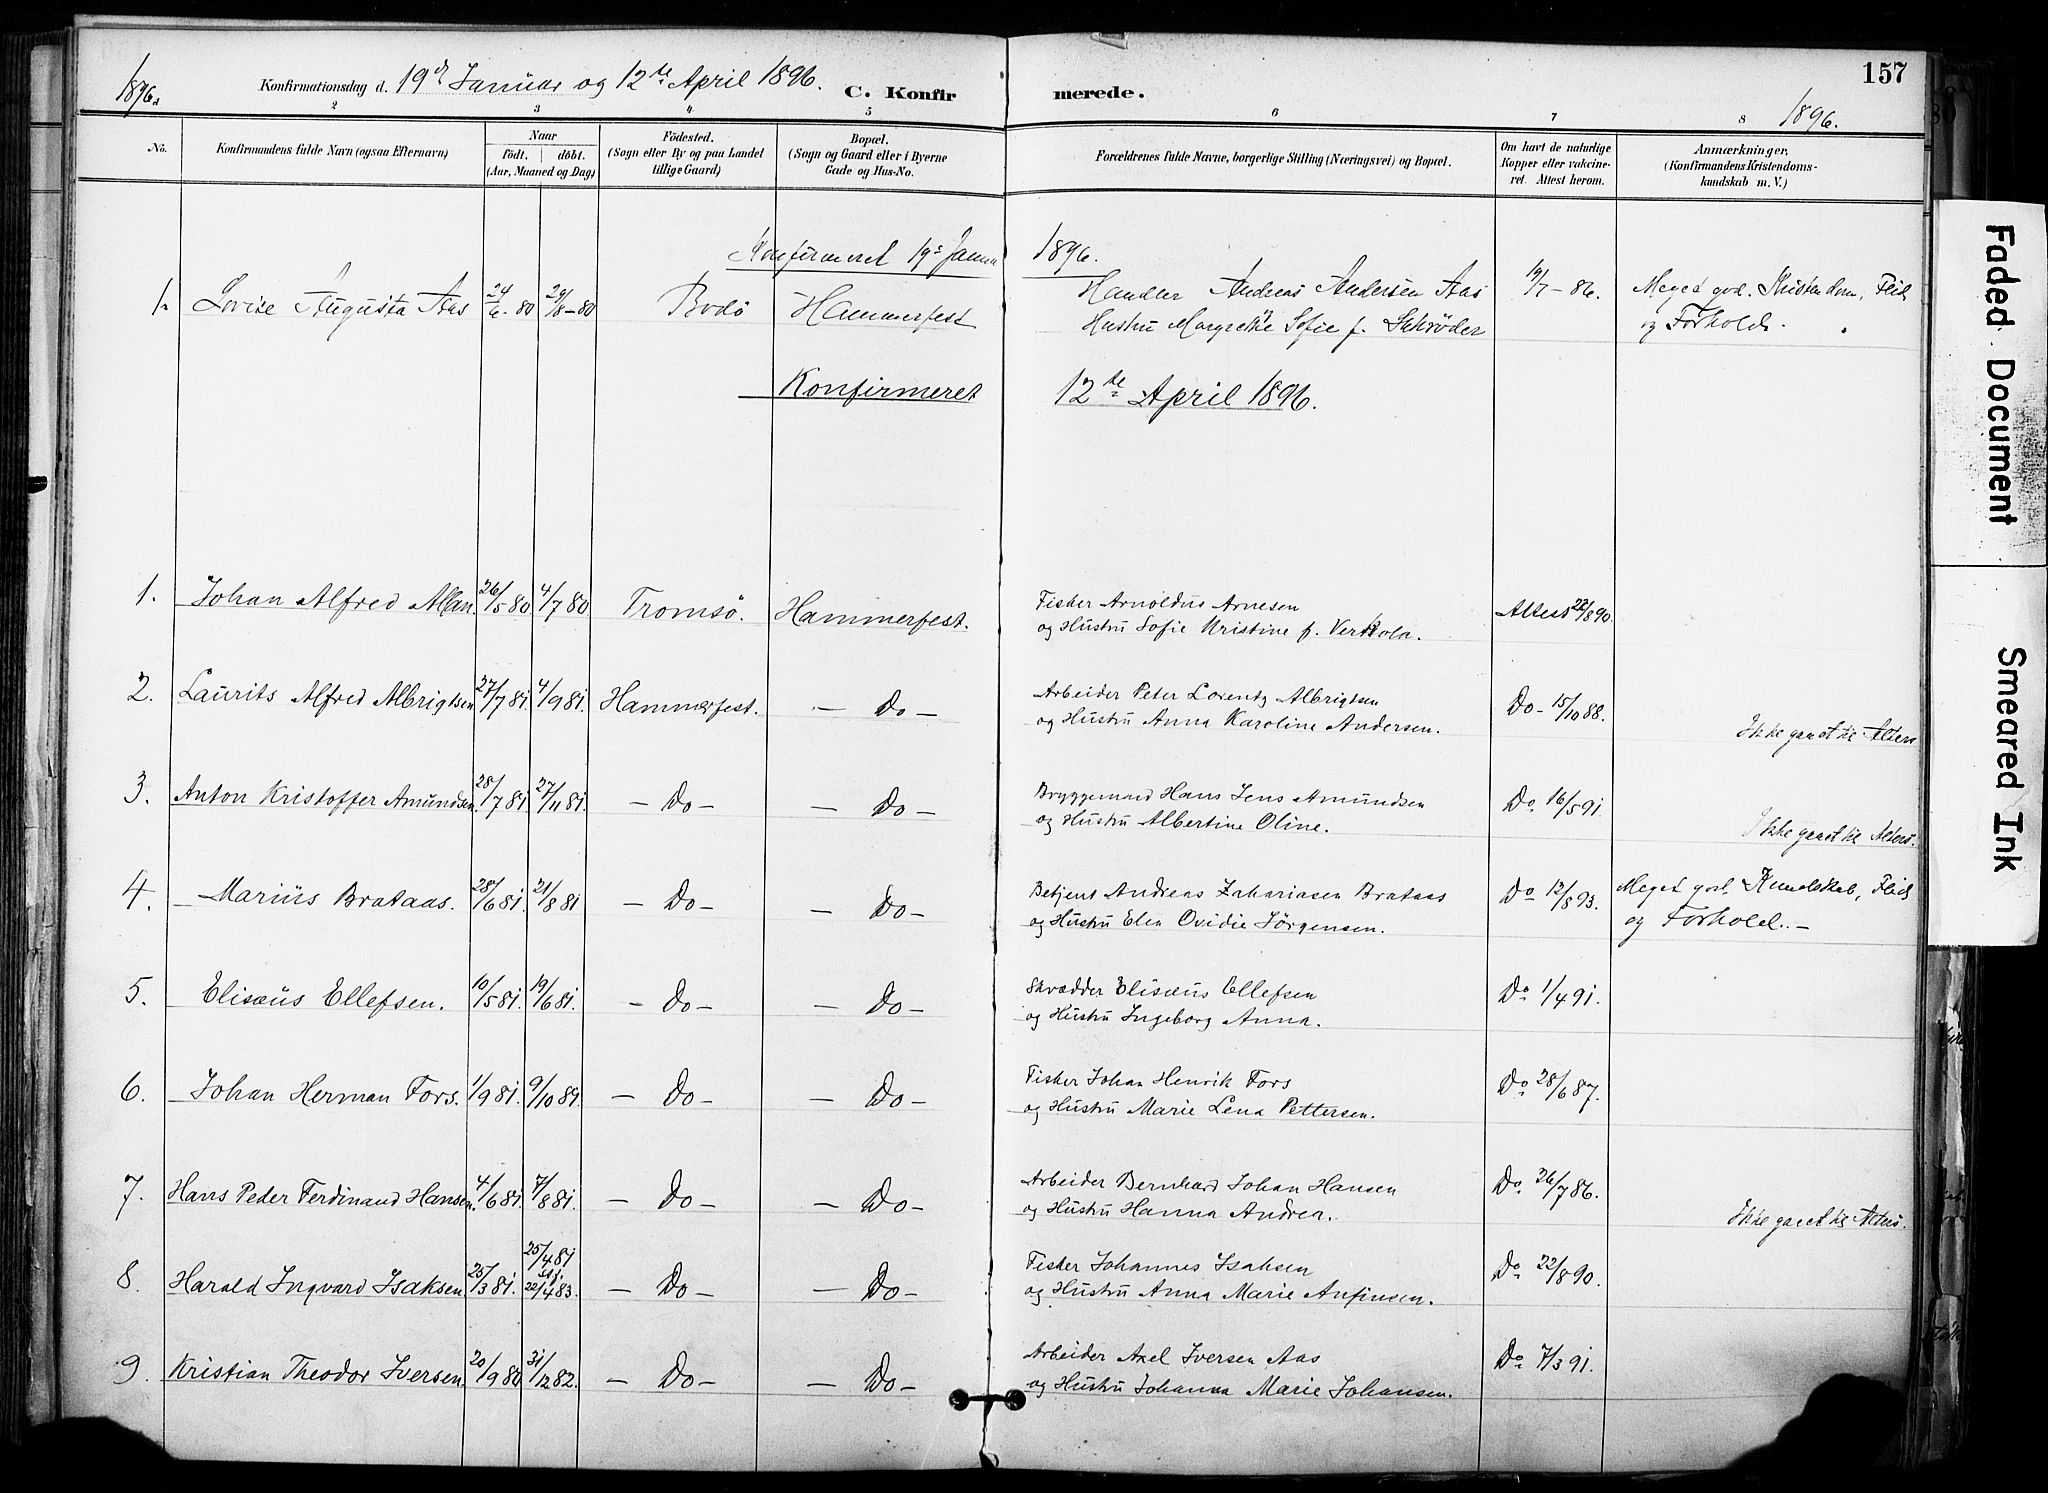 157
1896.
Konfirmationsdag d. 19de Januar og 12te April 1896. C. Konfir merede.
1896.
2 3 4 5 6 7 8
No. Konfirmandens fulde Navn (ogsaa Efternavn) Naar födt. döbt. (Aar, Maaned og Dag) Födested. (Sogn eller By og paa Landet tillige Gaard) Bopæl. (Sogn og Gaard eller i Byerne Gade og Hus-No. Forældrenes fulde Navne, borgerlige Stilling (Næringsvei) og Bopæl. Om havt de naturlige Kopper eller vakcineret. Attest herom. Anmærkninger, (Konfirmandens Kristendomskundskab m. V.)
Konfirmeret 19de Janua 1896.
1. Lovise Augusta Aas 24/6-80 29/8-80 Bodö Hammerfest Handler Andreas Andersen Aas 19/7-86. Meget god. Kristendom, Flid
Hustru Margrethe Sofie f. Schröder og Forhold.
Konfirmeret 12te April 1896.
1. Johan Alfred Allan. 26/5 80 4/7 80 Tromsö. Hammerfest. Fisker Arnoldus Arnesen Attest 22/8 90.
og Hustru Sofie Kristine f. Verkola.
2. Laurits Alfred Albrigtsen 27/7 81. 4/9 81. Hammerfest. — Do — Arbeider Peter Lorentz Albrigtsen Do - 15/10 88.
og Hustru Anna Karoline Andersen. Ikke gaaet til Alters
3. Anton Kristoffer Amundsen. 28/7 81. 27/11 81. — Do — — Do — Bryggemand Hans Jens Amundsen Do 16/5 91.
og Hustru Albertine Oline. Ikke gaaet til Alters.
4. Marius Brataas. 28/6 81. 21/8 81 — Do — — Do — Betjent Andreas Zahariasen Brataas Do 12/8 93. Meget god. Kundskab, Flid
og Hustru Elen Ovidie Jörgensen. og Forhold. —
5. Elisæus Ellefsen. 10/5 81. 19/6 81. — Do — — Do — Skrædder Elisæus Ellefsen Do 1/4 91.
og Hustru Ingeborg Anna.
6. Johan Herman Fors. 1/9 81. 9/10 81. — Do — — Do — Fisker Johan Henrik Fors Do 28/6 87.
og Hustru Marie Lena Pettersen.
7. Hans Peder Ferdinand Hansen. 4/6 81. 7/8 81. — Do — — Do — Arbeider Bernhard Johan Hansen Do 26/7 86.
og Hustru Hanna Andrea. Ikke gaaet til Alters.
25/4 81
8. Harald Ingvard Isaksen. 25/3 81. 22/4 83. — Do — — Do — Fisker Johannes Isaksen Do 22/8 90.
og Hustru Anna Marie Anfinsen.
9. Kristian Theodor Iversen. 20/9 80 31/12 82. — Do — — Do — Arbeider Axel Iversen Aas Do 7/3 91.
og Hustru Johanna Marie Johansen.
Faded Document
Smeared Ink